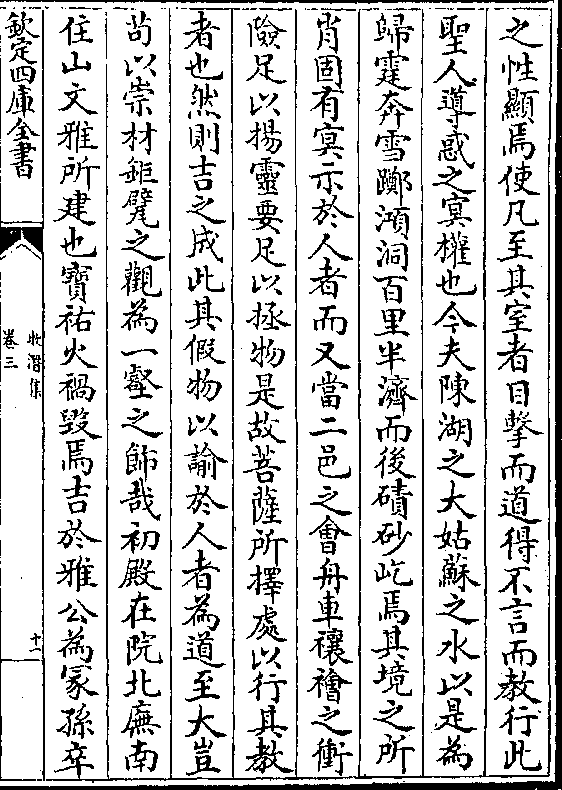 之性顯焉使凡至其室者目擊而道得不言而教行此
聖人導惑之冥權也今夫陳湖之大姑蘇之水以是為
歸霆奔雪躑澒洞百里半濟而後磧砂屹焉其境之所
肖固有冥示於人者而又當二邑之會舟車禳禬之衝
險足以揚靈要足以拯物是故菩薩所擇處以行其教
者也然則吉之成此其假物以諭於人者為道至大豈
苟以崇材鉅甓之觀為一壑之飾哉初殿在院北廡南
住山文雅所建也寶祐火禍毀焉吉於雅公為冢孫卒
欽定四庫全書
牧潛集
卷三
十一